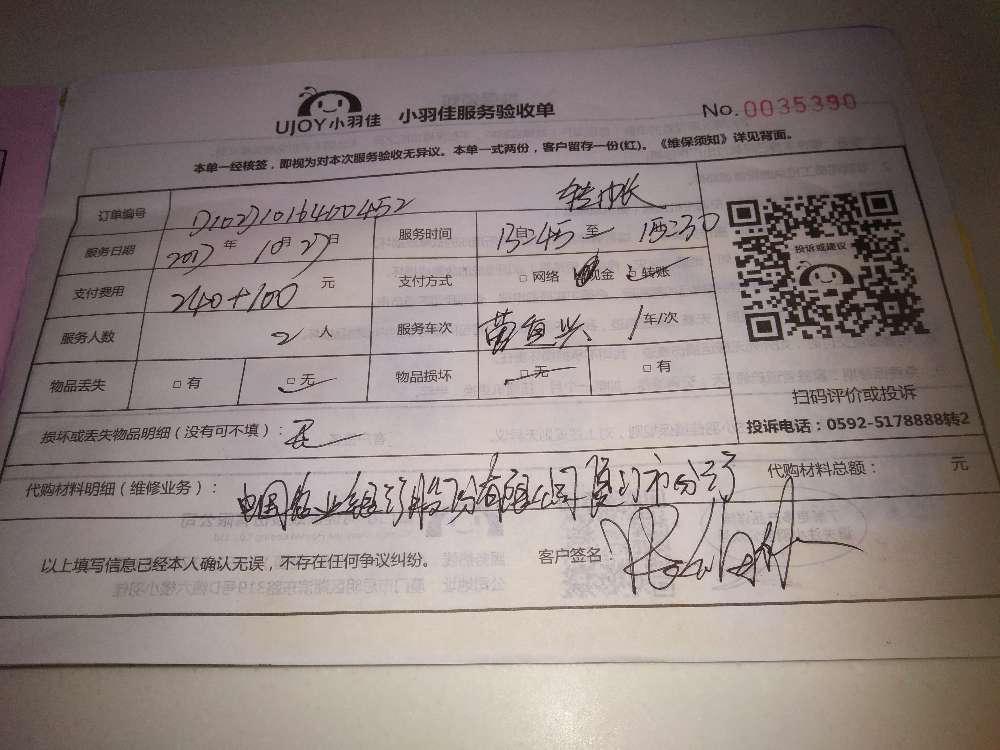 UJOY小羽佳 小羽佳服务验收单 No.0035390
本单一经核签，即视为对本次服务验收无异议。本单一式两份，客户留存一份(红)。《维保须知》详见背面。
订单编号
服务日期 年 10月27日 服务时间 至
投诉或建议
支付费用 240+100 元 支付方式 □ 网络 现金 □ 转账
服务人数 2 人 服务车次 1 车/次
物品丢失 □ 有 □ 无 物品损坏 □ 无 □ 有
扫码评价或投诉
损坏或丢失物品明细（没有可不填）： 无
投诉电话：0592-5178888转2
代购材料明细（维修业务）： 中国农业银行股份有限公司厦门市分行 代购材料总额： 元
以上填写信息已经本人确认无误，不存在任何争议纠纷。 客户签名：